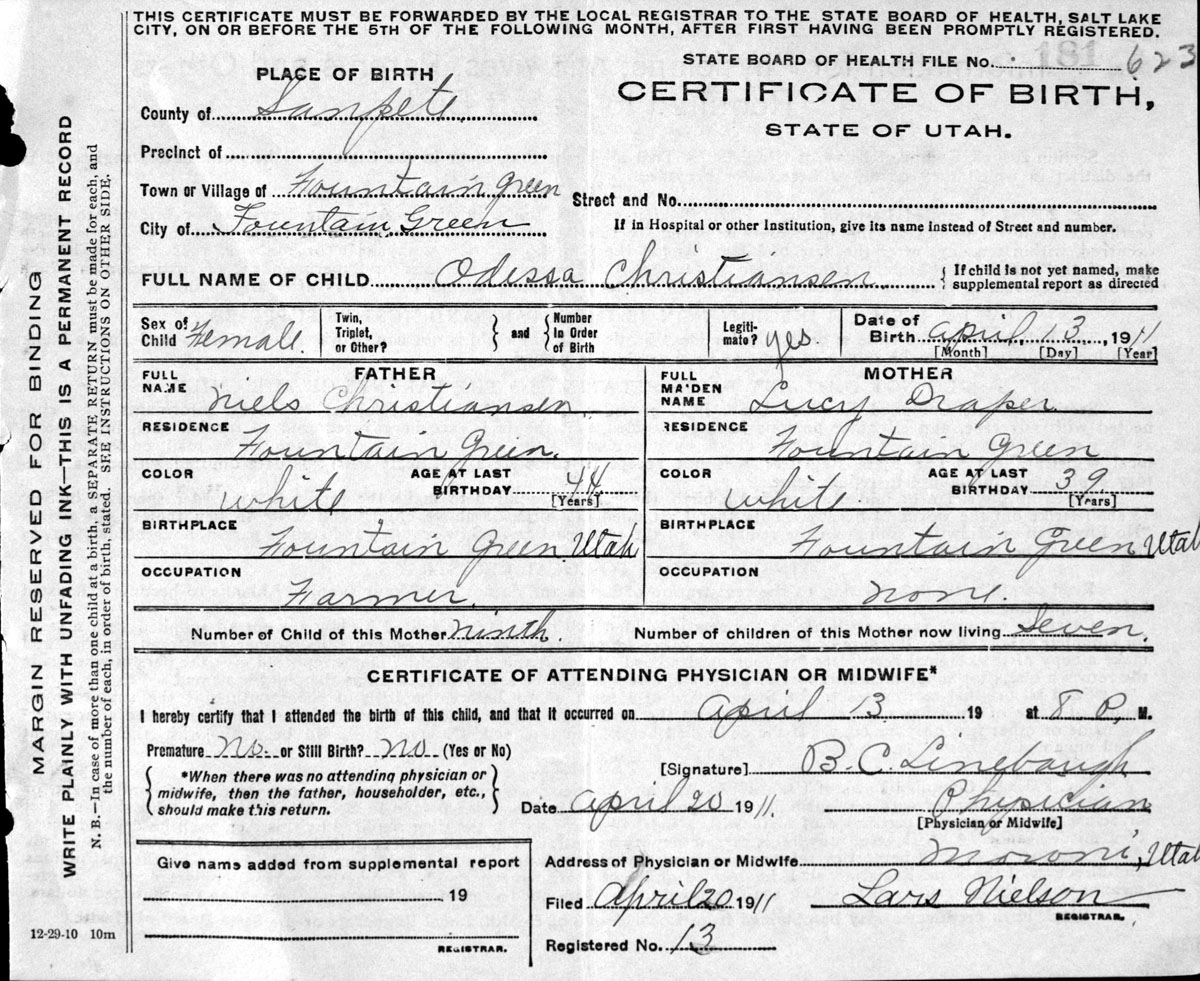 THIS CERTIFICATE MUST BE FORWARDED BY THE LOCAL REGISTRAR TO THE STATE BOARD OF HEALTH, SALT LAKE
CITY, ON OR BEFORE THE 5TH OF THE FOLLOWING MONTH, AFTER FIRST HAVING BEEN PROMPTLY REGISTERED.
STATE BOARD OF HEALTH FILE No. 181 623
CERTIFICATE OF BIRTH,
STATE OF UTAH.
PLACE OF BIRTH
County of Sanpete
Precinct of
Town or Village of Fountain Green
Street and No.
City of Fountain Green
If in Hospital or other Institution, give its name instead of Street and number.
FULL NAME OF CHILD Odessa Christiansen { If child is not yet named, make
supplemental report as directed
Sex of Child Female.
Twin, Triplet, or Other? } and { Number in Order of Birth
Legiti-mate? yes
Date of Birth April 13, 1911
[Month] [Day] [Year]
FATHER
FULL NAME Niels Christiansen.
RESIDENCE Fountain Green.
COLOR White
AGE AT LAST BIRTHDAY 44
[Years]
BIRTHPLACE Fountain Green Utah
OCCUPATION Farmer.
MOTHER
FULL MAIDEN NAME Lucy Draper.
RESIDENCE Fountain Green
COLOR White
AGE AT LAST BIRTHDAY 39
[Years]
BIRTHPLACE Fountain Green Utah
OCCUPATION None.
Number of Child of this Mother ninth. Number of children of this Mother now living Seven.
CERTIFICATE OF ATTENDING PHYSICIAN OR MIDWIFE*
I hereby certify that I attended the birth of this child, and that it occurred on April 13 19 at 8 P. M.
Premature No. or Still Birth? No (Yes or No)
{ *When there was no attending physician or
midwife, then the father, householder, etc.,
should make this return. }
[Signature] B. C. Linebaugh
Date April 20 1911. Physician
[Physician or Midwife]
Give name added from supplemental report
19
REGISTRAR.
12-29-10 10m
Address of Physician or Midwife Moroni, Utah
Filed April 20 1911 Lars Nielson
REGISTRAR.
Registered No. 13
MARGIN RESERVED FOR BINDING
WRITE PLAINLY WITH UNFADING INK—THIS IS A PERMANENT RECORD
N. B.—In case of more than one child at a birth, a SEPARATE RETURN must be made for each, and
the number of each, in order of birth, stated. SEE INSTRUCTIONS ON OTHER SIDE.